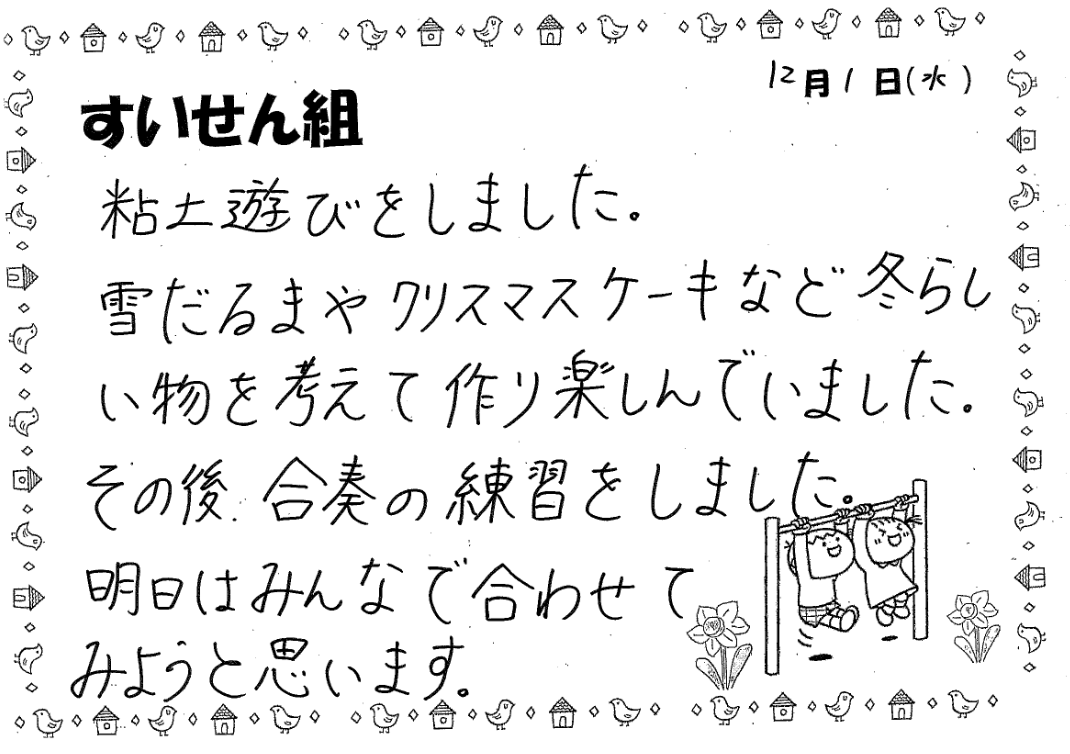 12月1日(水)
すいせん組
粘土遊びをしました。
雪だるまやクリスマスケーキなど冬らし
い物を考えて作り楽しんでいました。
その後、合奏の練習をしました。
明日はみんなで合わせて
みようと思います。